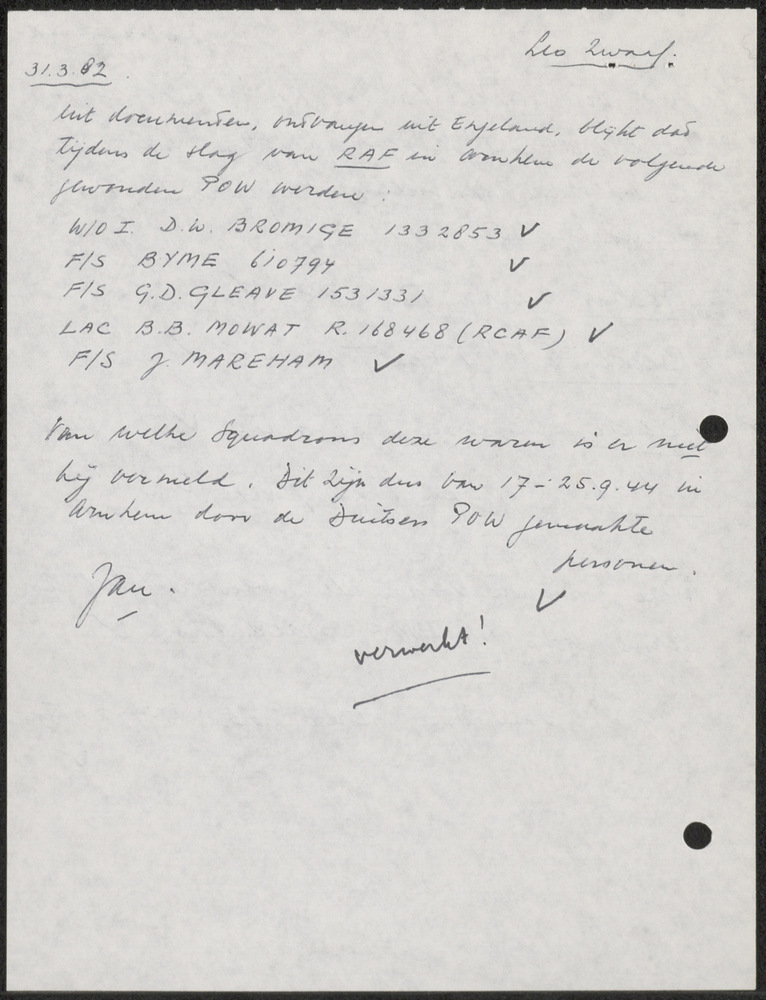 Leo Zwaaf.
31.3.82.
Uit documenten, ontvangen uit Engeland, blijkt dat
tijdens de slag van RAF in Arnhem de volgende
gewonden POW werden:
W/O I. D.W. BROMIGE 1332853 ✓
F/S BYME 610794 ✓
F/S G.D. GLEAVE 1531331 ✓
LAC B.B. MOWAT R.168468 (RCAF) ✓
F/S J. MAREHAM ✓
Van welke Squadrons deze waren is er niet
bij vermeld. Dit zijn dus van 17-25.9.44 in
Arnhem door de Duitsers POW gemaakte
personen.
Jan.
✓
verwerkt!